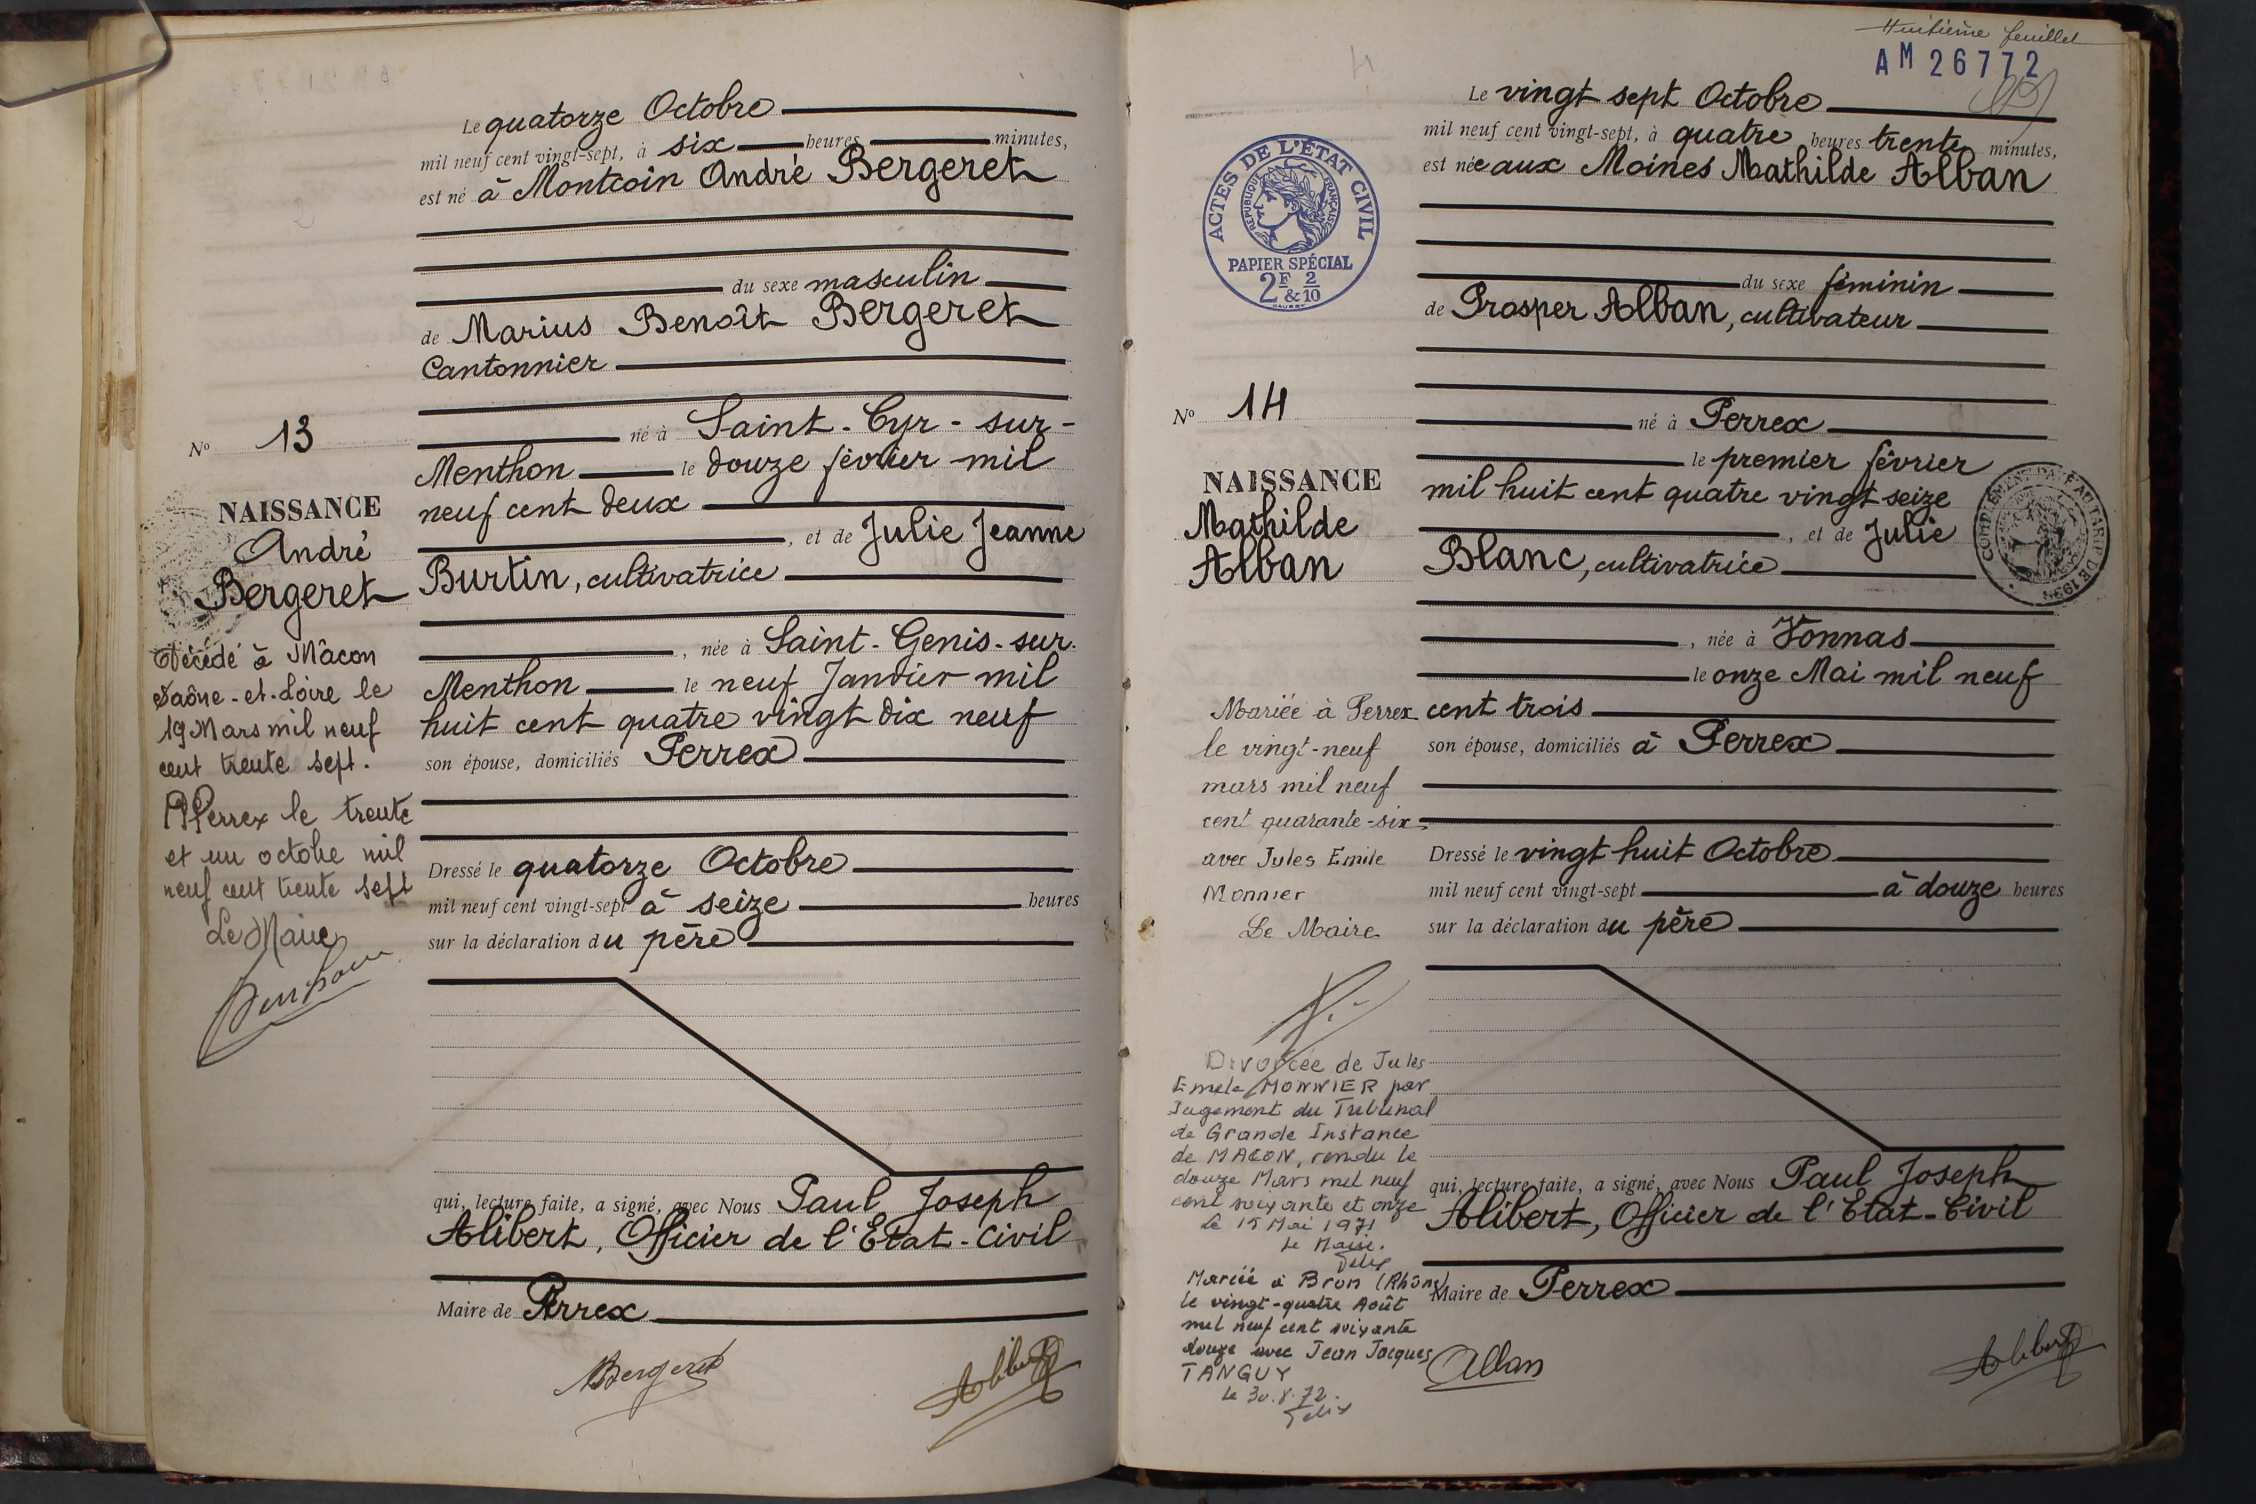 Le quatorze Octobre
mil neuf cent vingt-sept, à six heures minutes,
est né à Montcoin André Bergeret
du sexe masculin
de Marius Benoît Bergeret
Cantonnier
né à Saint-Cyr-sur-
Menthon le douze février mil
neuf cent deux
, et de Julie Jeanne
Burtin, cultivatrice
, née à Saint-Genis-sur-
Menthon le neuf Janvier mil
huit cent quatre vingt dix neuf
son épouse, domiciliés Perrex
Dressé le quatorze Octobre
mil neuf cent vingt-sept à seize heures
sur la déclaration du père
qui, lecture faite, a signé, avec Nous Paul Joseph
Alibert, Officier de l'Etat-Civil
Maire de Perrex
Bergeret
Alibert
No 13
NAISSANCE
André
Bergeret
Décédé à Mâcon
Saône-et-Loire le
19 Mars mil neuf
cent trente sept.
A Perrex le trente
et un octobre mil
neuf cent trente sept
Le Maire
Huitième feuillet
AM 26772
Le vingt sept Octobre
mil neuf cent vingt-sept, à quatre heures trente minutes,
est née aux Moines Mathilde Alban
du sexe féminin
de Prosper Alban, cultivateur
né à Perrex
le premier février
mil huit cent quatre vingt seize
, et de Julie
Blanc, cultivatrice
, née à Vonnas
le onze Mai mil neuf
cent trois
son épouse, domiciliés à Perrex
Dressé le vingt huit Octobre
mil neuf cent vingt-sept à douze heures
sur la déclaration du père
qui, lecture faite, a signé, avec Nous Paul Joseph
Alibert, Officier de l'Etat-Civil
Maire de Perrex
Alban
Alibert
ACTES DE L'ÉTAT CIVIL
RÉPUBLIQUE FRANÇAISE
PAPIER SPÉCIAL
2F & 2/10
No 14
NAISSANCE
Mathilde
Alban
COMPLÉMENT DE TARIF DE 19
Mariée à Perrex
le vingt-neuf
mars mil neuf
cent quarante-six
avec Jules Emile
Monnier
Le Maire
Divorcée de Jules
Emile MONNIER par
Jugement du Tribunal
de Grande Instance
de MACON, rendu le
douze Mars mil neuf
cent soixante et onze
Le 15 Mai 1971
Le Maire.
Félix
Mariée à Bron (Rhône)
le vingt-quatre Août
mil neuf cent soixante
douze avec Jean Jacques
TANGUY
Le 30.8.72.
Félix